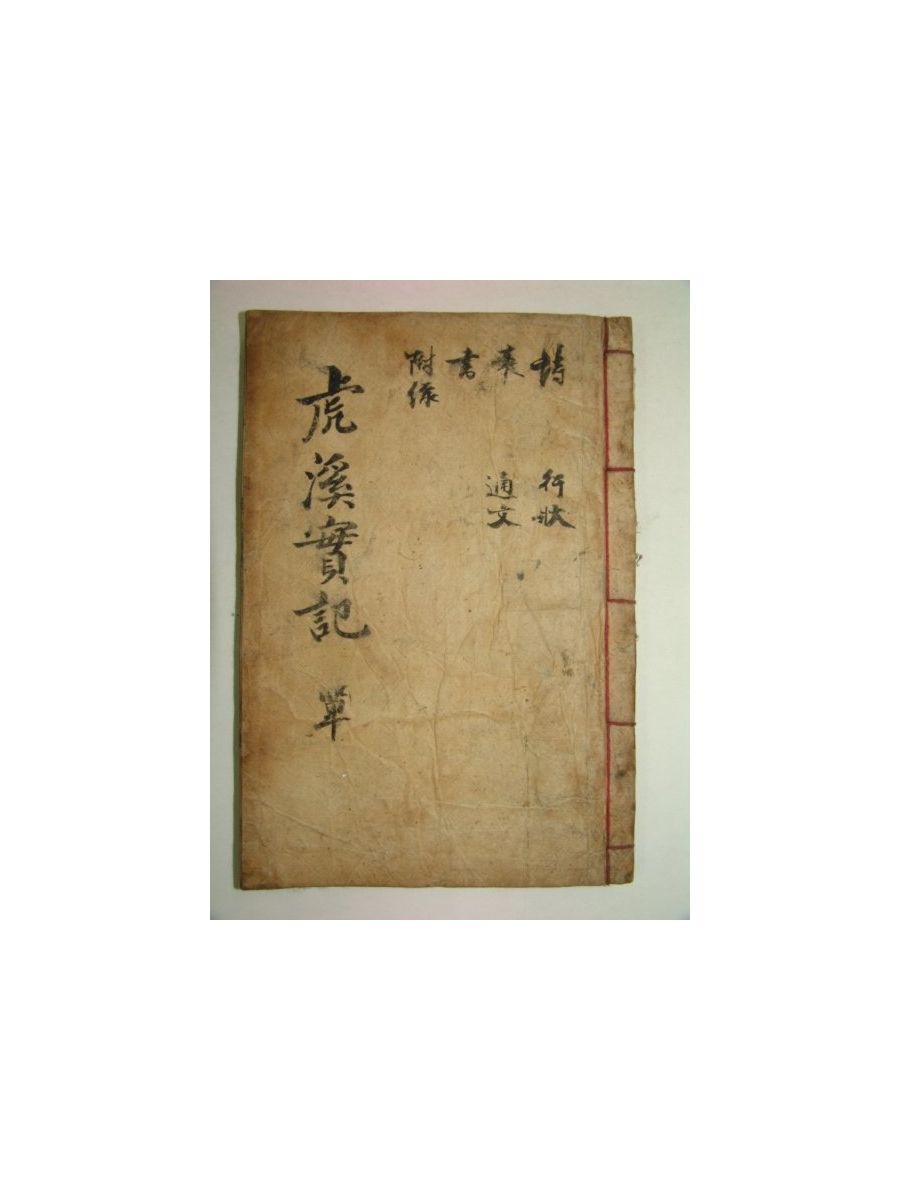 詩 行狀
表 通文
書
附錄
虎溪實記 單